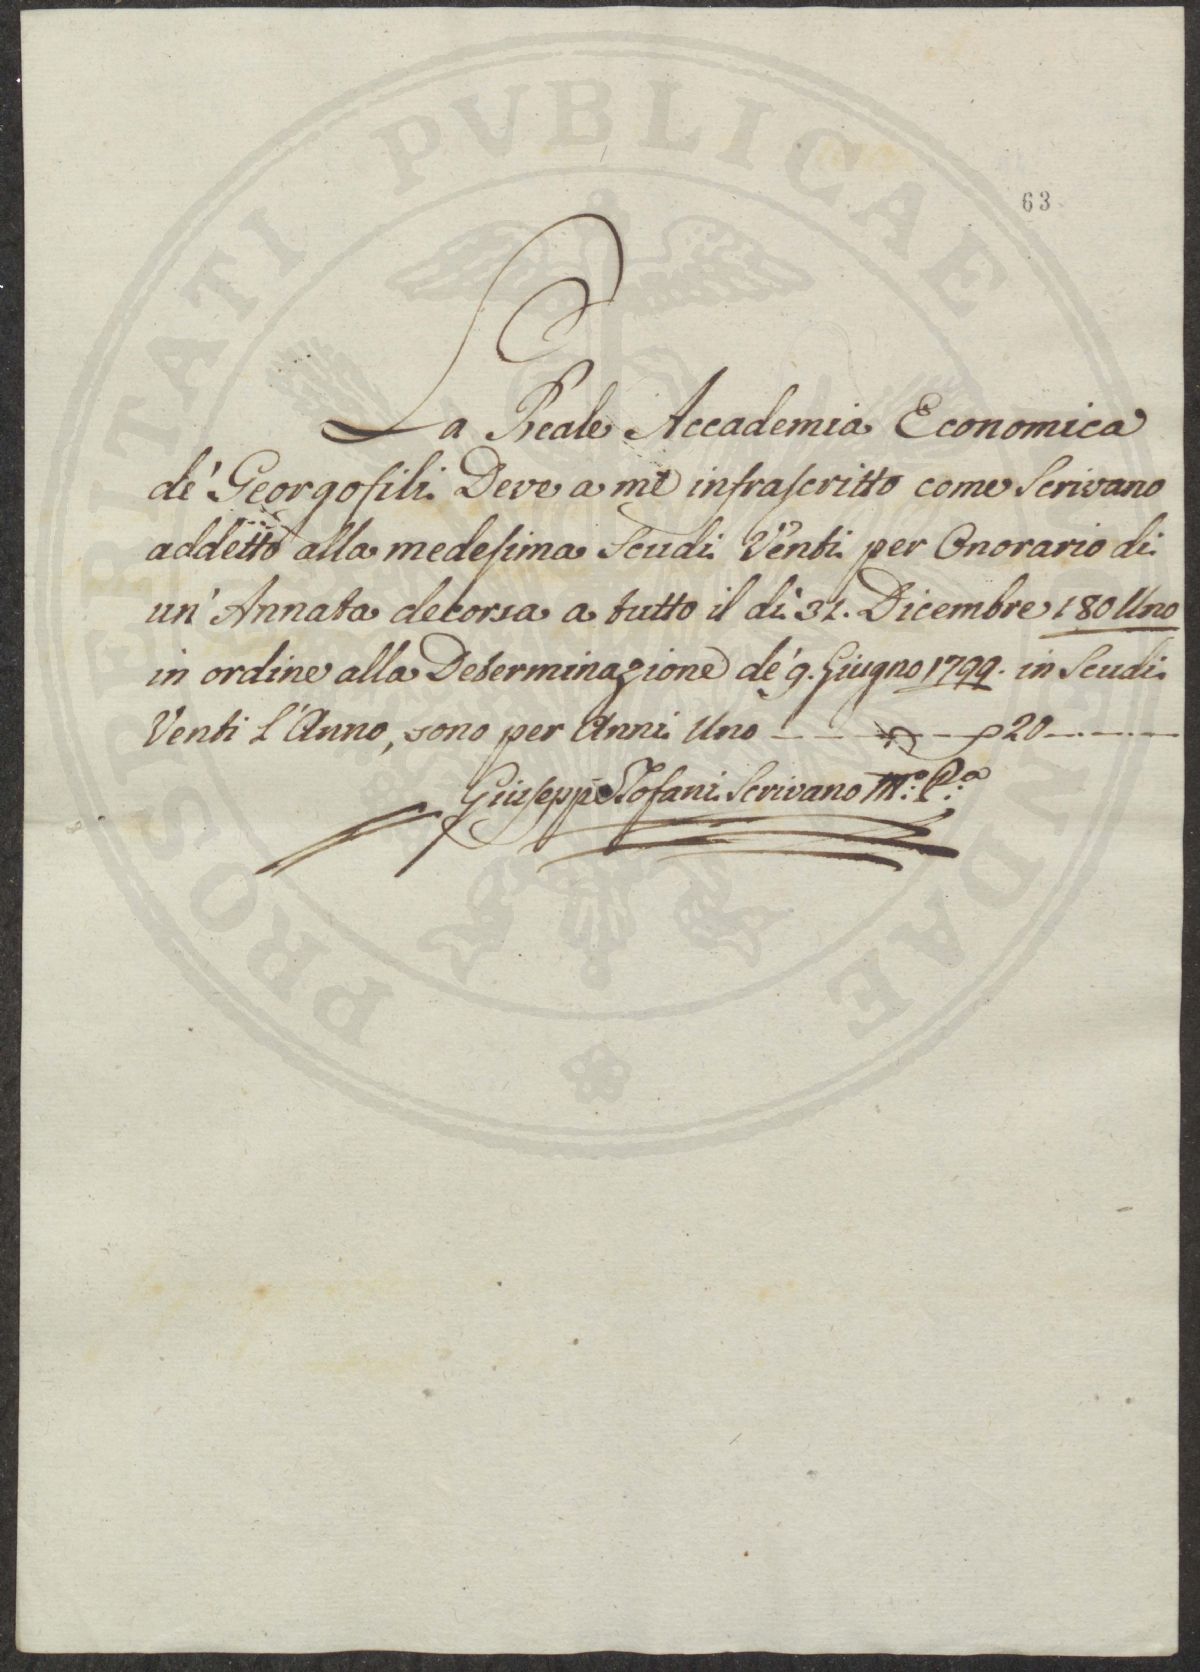 63
La Reale Accademia Economica
de' Georgofili Deve a me infrascritto come Scrivano
addetto alla medesima Scudi Venti per Onorario di
un' Annata decorsa a tutto il dì 31. Dicembre 180Uno
in ordine alla Determinazione de' 9. Giugno 1799. in Scudi
Venti l'Anno, sono per Anni Uno 20
Giuseppe Tofani Scrivano Mo: Pa:
PROSPERITATI PUBLICAE